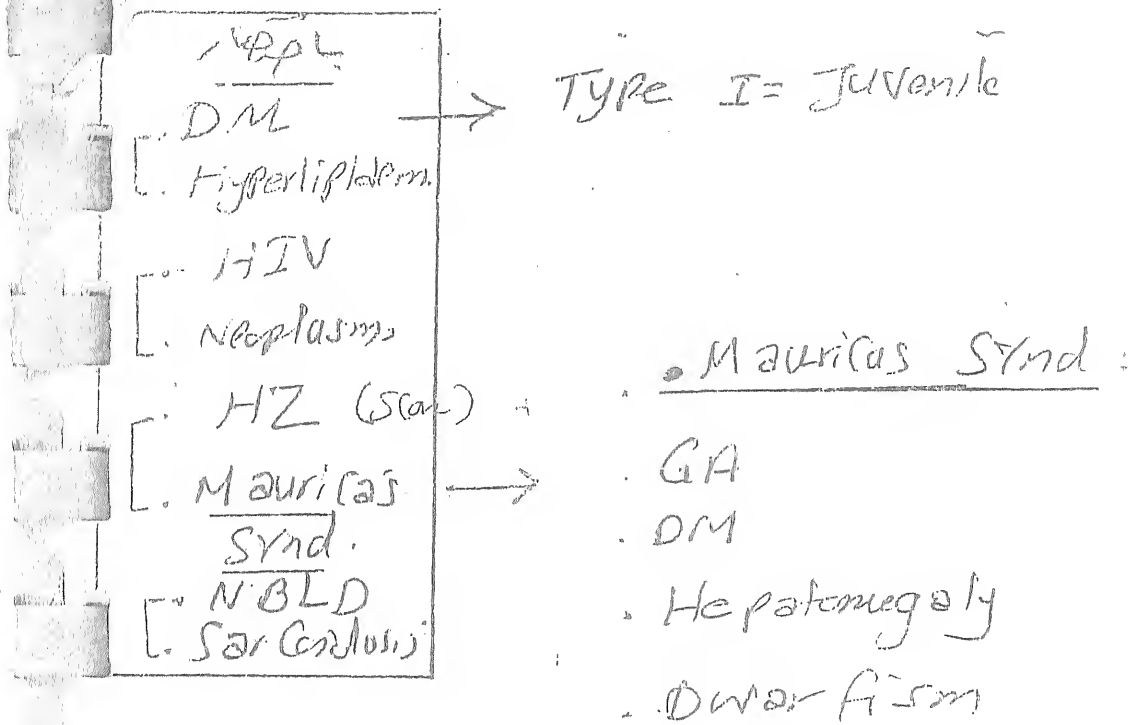 DM → Type I = Juvenile
Hyperlipidem.
HIV
Neoplasms
HZ (Scar)
Mauricas →
Synd.
NBLD
Sarcoidosis
. Mauricas Synd :
. GA
. DM
. Hepatomegaly
. Dwarfism